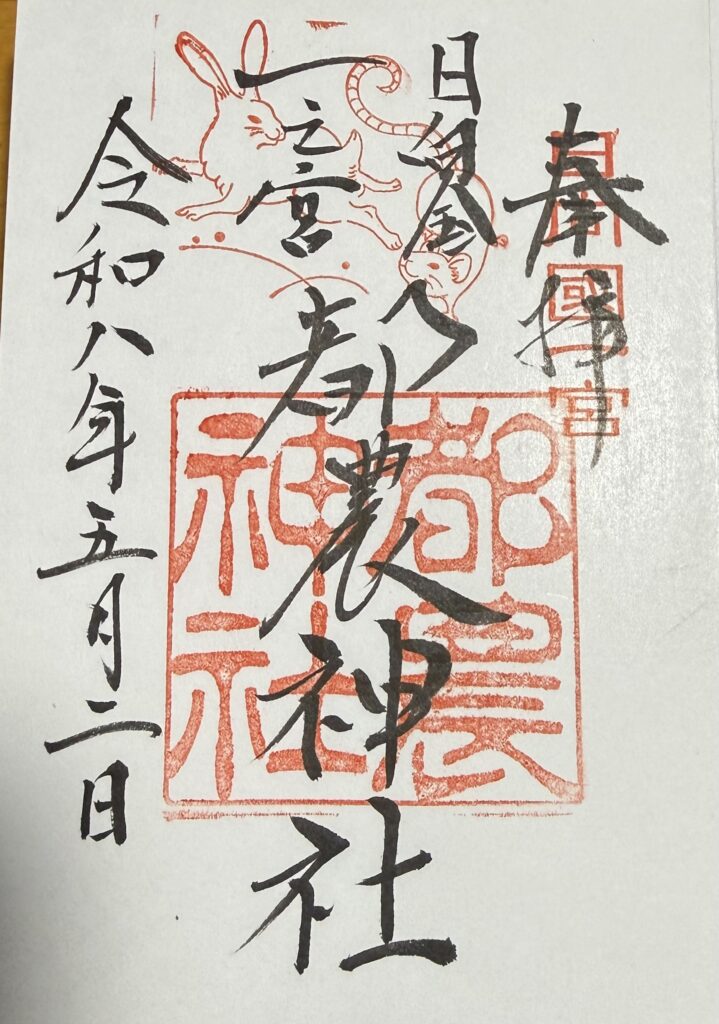 奉拝
日向國一宮
日
一之宮
都農神社
都農神社
令和八年五月二日